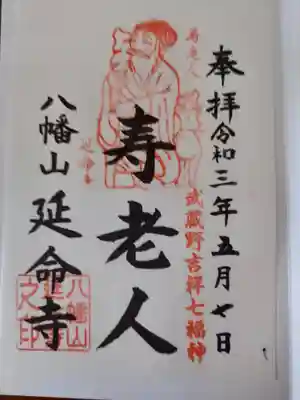 奉拝令和三年五月七日
武蔵野吉祥七福神
寿老人
八幡山延命寺
八幡山
之印